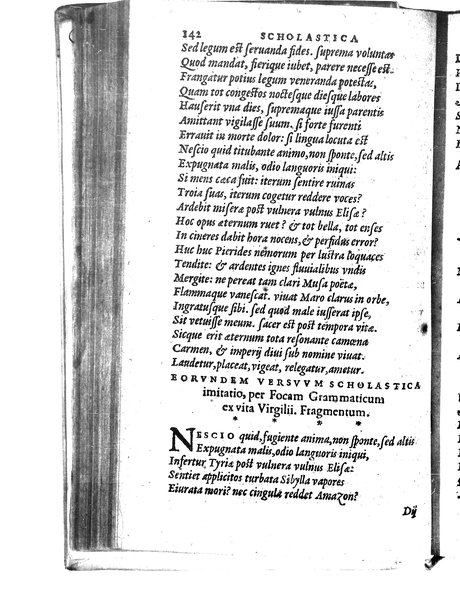 142 SCHOLASTICA
Sed legum est seruanda fides. suprema voluntas
Quod mandat, fierique iubet, parere necesse est.
Frangatur potius legum veneranda potestas,
Quam tot congestos noctesque diesque labores
Hauserit vna dies, supremaque iussa parentis
Amittant vigilasse suum. si forte furenti
Errauit in morte dolor: si lingua locuta est
Nescio quid titubante animo, non sponte, sed altis
Expugnata malis, odio languoris iniqui:
Si mens cæca fuit: iterum sentire ruinas
Troia suas, iterum cogetur reddere voces?
Ardebit miseræ post vulnera vulnus Elisæ?
Hoc opus æternum ruet? & tot bella, tot enses
In cineres dabit hora nocens, & perfidus error?
Huc huc Pierides nemorum per lustra loquaces
Tendite: & ardentes ignes fluuialibus vndis
Mergite: ne pereat tam clari Musa poëtæ,
Flammaque vanescat. viuat Maro clarus in orbe,
Ingratusque sibi. sed quod male iusserat ipse,
Sit vetuisse meum. sacer est post tempora vitæ.
Sicque erit æternum tota resonante camœna
Carmen, & imperij diui sub nomine viuat.
Laudetur, placeat, vigeat, relegatur, ametur.
EORVNDEM VERSVVM SCHOLASTICA
imitatio, per Focam Grammaticum
ex vita Virgilii. Fragmentum.
* * * *
NESCIO quid, fugiente anima, non sponte, sed altis
Expugnata malis, odio languoris iniqui,
Infertur Tyria post vulnera vulnus Elisæ:
Sentiet applicitos turbata Sibylla vapores
Eiurata mori? nec cingula reddet Amazon?
Dij